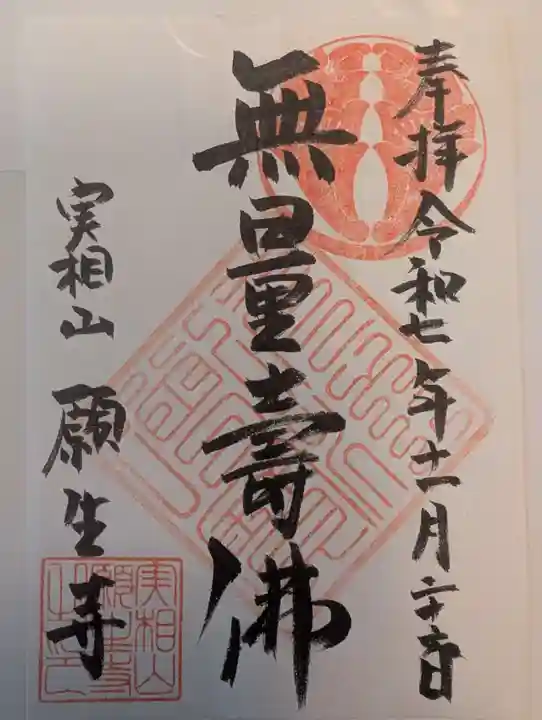 奉拝 令和七年十一月二十六日
無量壽佛
実相山 願生寺
実相山
願生寺
之印